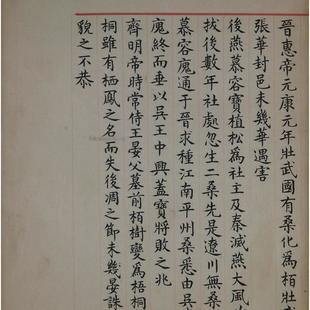 晉惠帝元康元年壯武國有桑化為栢壯武
張華封邑未幾華遇害
後燕慕容寶植松為社主及秦滅燕大風
拔後數年社處忽生二桑先是遼川無桑
慕容廆通于晉求種江南平州桑悉由吳
廆終而垂以吳王中興蓋寶將敗之兆
齊明帝時常侍王晏父墓前栢樹變為梧桐
桐雖有栖鳳之名而失後凋之節未幾晏誅
貌之不恭